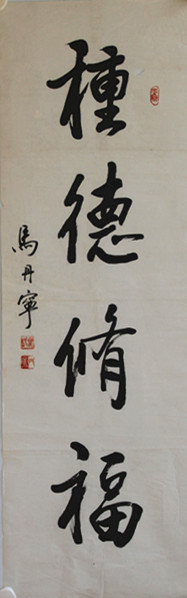 種德脩福
馬丹寧